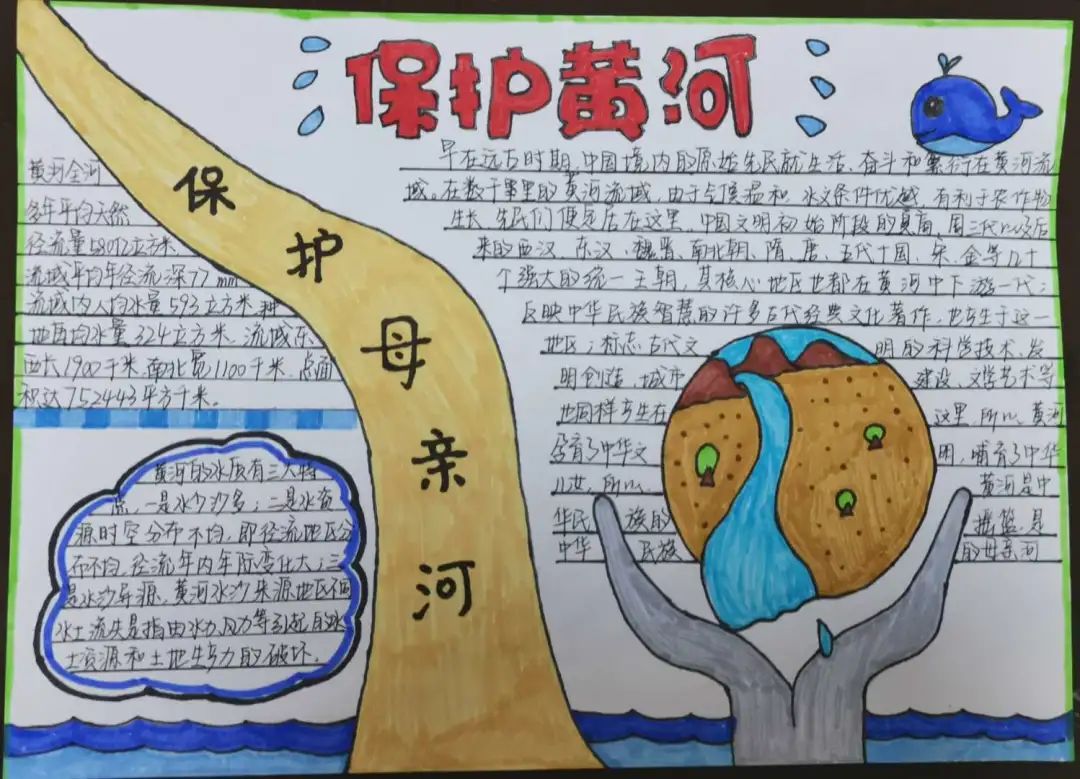 保护黄河
保护母亲河
黄河全河
多年平均天然
径流量580亿立方米
流域平均年径流深77mm
流域内人均水量593立方米 耕
地亩均水量324立方米. 流域东
西长1900千米 南北宽1100千米.
积达752443平方千米。
黄河的水质有三大特
点, 一是水少沙多; 二是水资
源时空分布不均, 即径流地区分
布不均 径流年内年际变化大; 三
是水沙异源, 黄河水沙来源地区不同
水土流失是指由水力.风力等引起的水
土资源和土地生产力的破坏.
早在远古时期, 中国境内的原始先民就生活、奋斗和繁衍在黄河流
域。在数千里的黄河流域, 由于气候温和, 水文条件优越, 有利于农作物
生长, 先民们便定居在这里. 中国文明初始阶段的夏商、周三代以及后
来的西汉、东汉、魏晋、南北朝、隋、唐、五代十国、宋、金等几十
个强大的统一王朝, 其核心地区也都在黄河中下游一代;
反映中华民族智慧的许多古代经典文化著作, 也产生于这一
地区; 标志古代文 明的科学技术、发
明创造、城市 建设、文学艺术等
也同样产生在 这里, 所以, 黄河
孕育了中华文 明, 哺育了中华
儿女, 所以 黄河是中
华民 族的 摇篮, 是
中华 民族 的母亲河